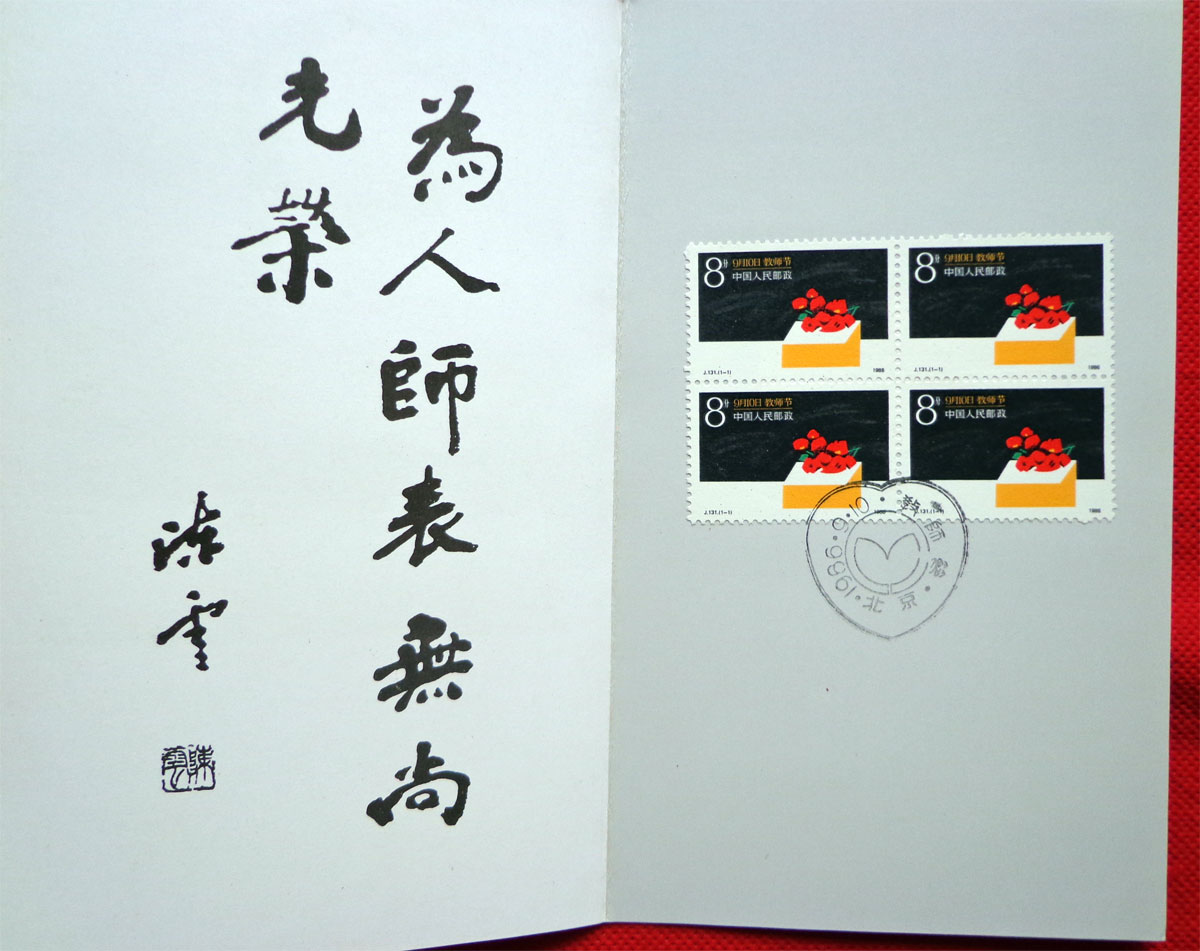 為人師表無尚
光榮
陈雲
陳雲
8分 9月10日 教师节
中国人民邮政
J.131.(1-1) 1986
8分 9月10日 教师节
中国人民邮政
J.131.(1-1) 1986
8分 9月10日 教师节
中国人民邮政
J.131.(1-1) 1986
8分 9月10日 教师节
中国人民邮政
J.131.(1-1) 1986
1986.9.10
教師節
北京